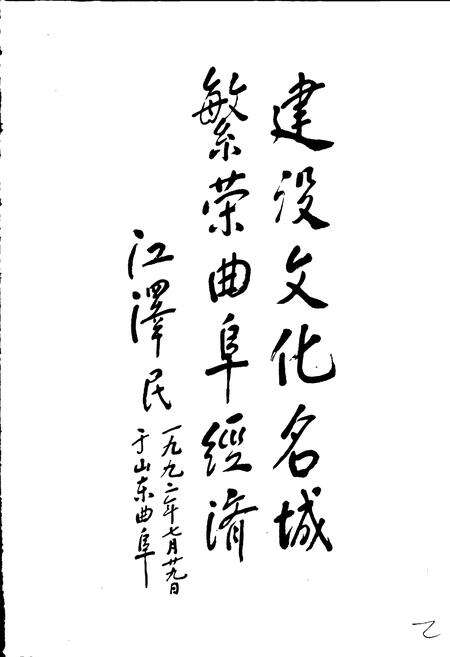 建设文化名城
繁荣曲阜經濟
江澤民
一九九二年七月廿九日
于山东曲阜